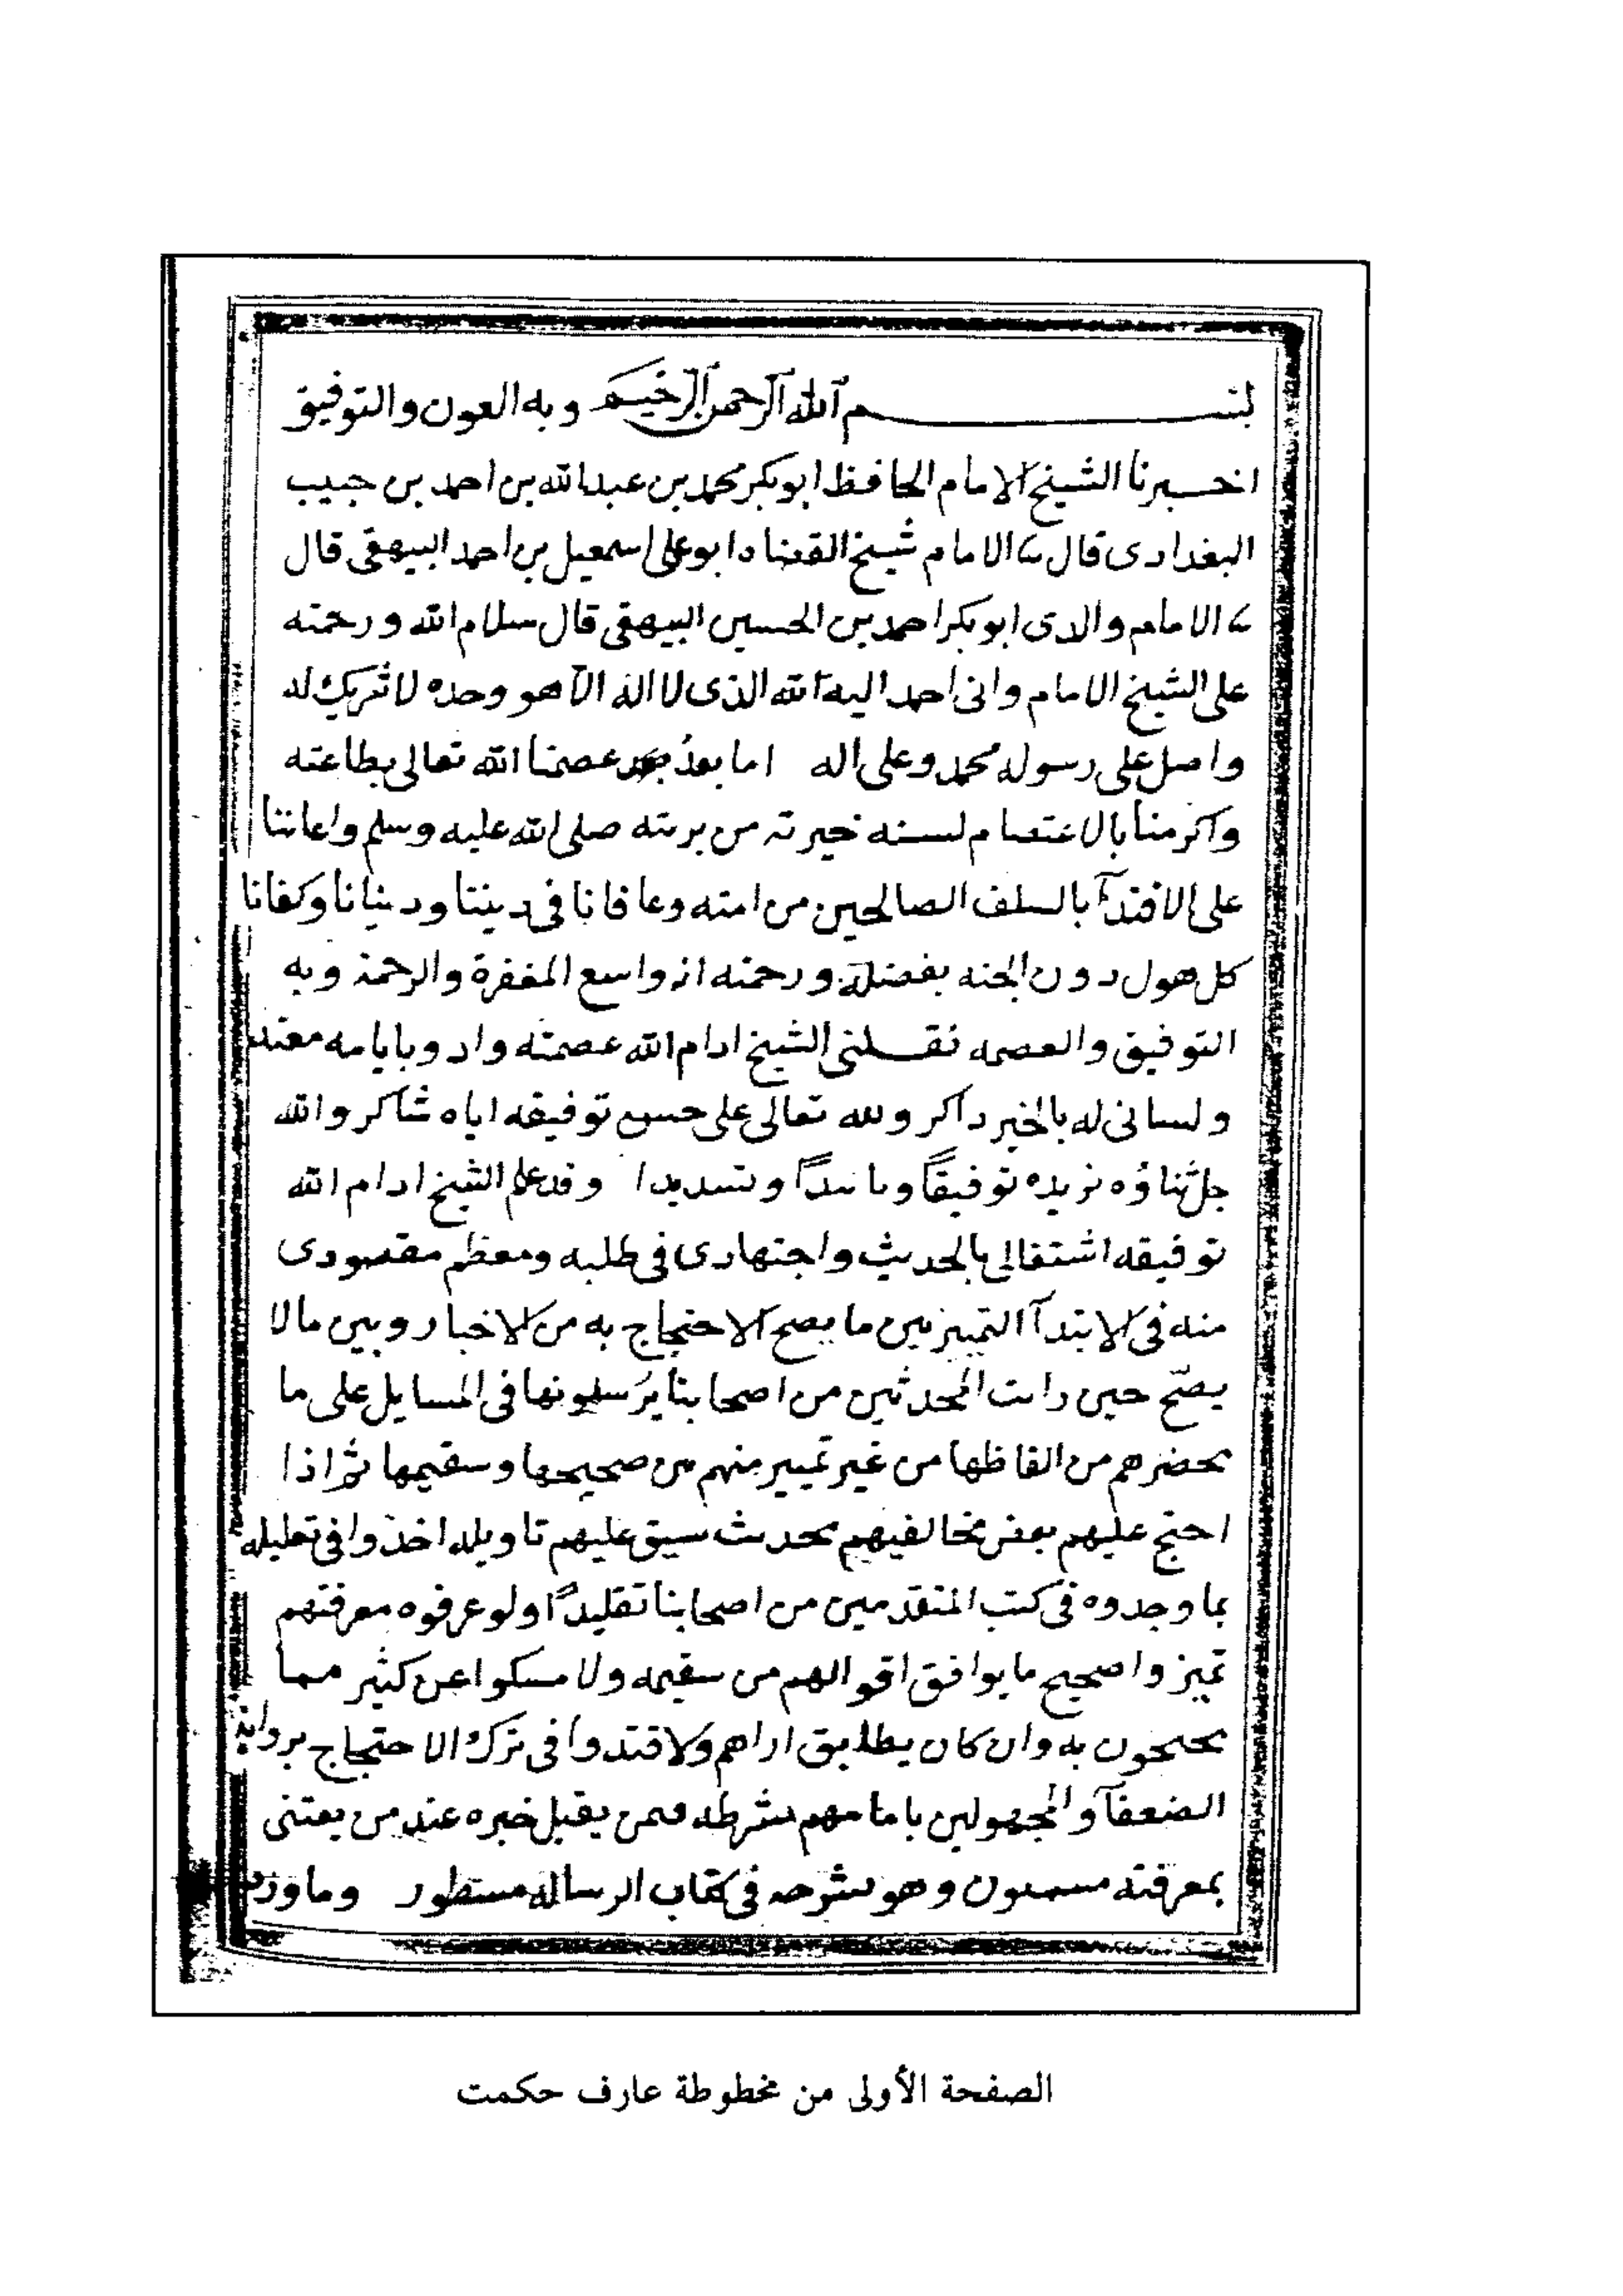 بسم الله الرحمن الرحيم وبه العون والتوفيق
اخبرنا الشيخ الامام الحافظ ابو بكر محمد بن عبدالله بن احمد بن حبيب
البغدادى قال ثنا الامام شيخ القضاه ابو على اسمعيل بن احمد البيهقى قال
ثنا الامام والدى ابو بكر احمد بن الحسين البيهقى قال سلام الله ورحمته
على الشيخ الامام وانى احمد اليه الله الذى لا اله الا هو وحده لا شريك له
واصلى على رسوله محمد وعلى اله اما بعد عصمنا الله تعالى بطاعته
واكرمنا بالاعتصام لسنه خيرته من بريته صلى الله عليه وسلم واعاننا
على الاقتدآ بالسلف الصالحين من امته وعافانا فى ديننا ودنيانا وكفانا
كل هول دون الجنه بفضله ورحمته انه واسع المغفرة والرحمة وبه
التوفيق والعصمه الشيخ ادام الله عصمته بايامه
ولسانى له بالخير ذاكر ولله تعالى على حسن توفيقه اياه شاكر والله
جل ثناؤه يزيده توفيقاً وتاييداً وتسديدا وقد علم الشيخ ادام الله
توفيقه اشتغالى بالحديث واجتهادى فى طلبه ومعظم مقصودى
منه فى الابتدآ التميز بين ما يصح الاحتجاج به من الاخبار وبين مالا
يصح حين رايت المحدثين من اصحابنا يرسلونها فى المسايل على ما
يحضرهم من الفاظها من غير تمييز منهم بين صحيحها وسقيمها ثم اذا
احتج عليهم بعض مخالفيهم بحديث عليهم تاويله اخذوا فى تعليله
بما وجدوه فى كتب المتقدمين من اصحابنا تقليداً ولو عرفوه معرفتهم
تميزوا صحيح ما يوافق اقوالهم من سقيمه ولا مسكوا عن كثير مما
يحتجون به وان كان يطابق اراهم ولاقتدوا فى ترك الاحتجاج برواية
الضعفآ والمجهولين بامامهم بشرطه فيمن يقبل خبره عند من يعتنى
بمعرفته وهو بشرحه فى كتاب الرساله مسطور وما ورد
الصفحة الأولى من مخطوطة عارف حكمت